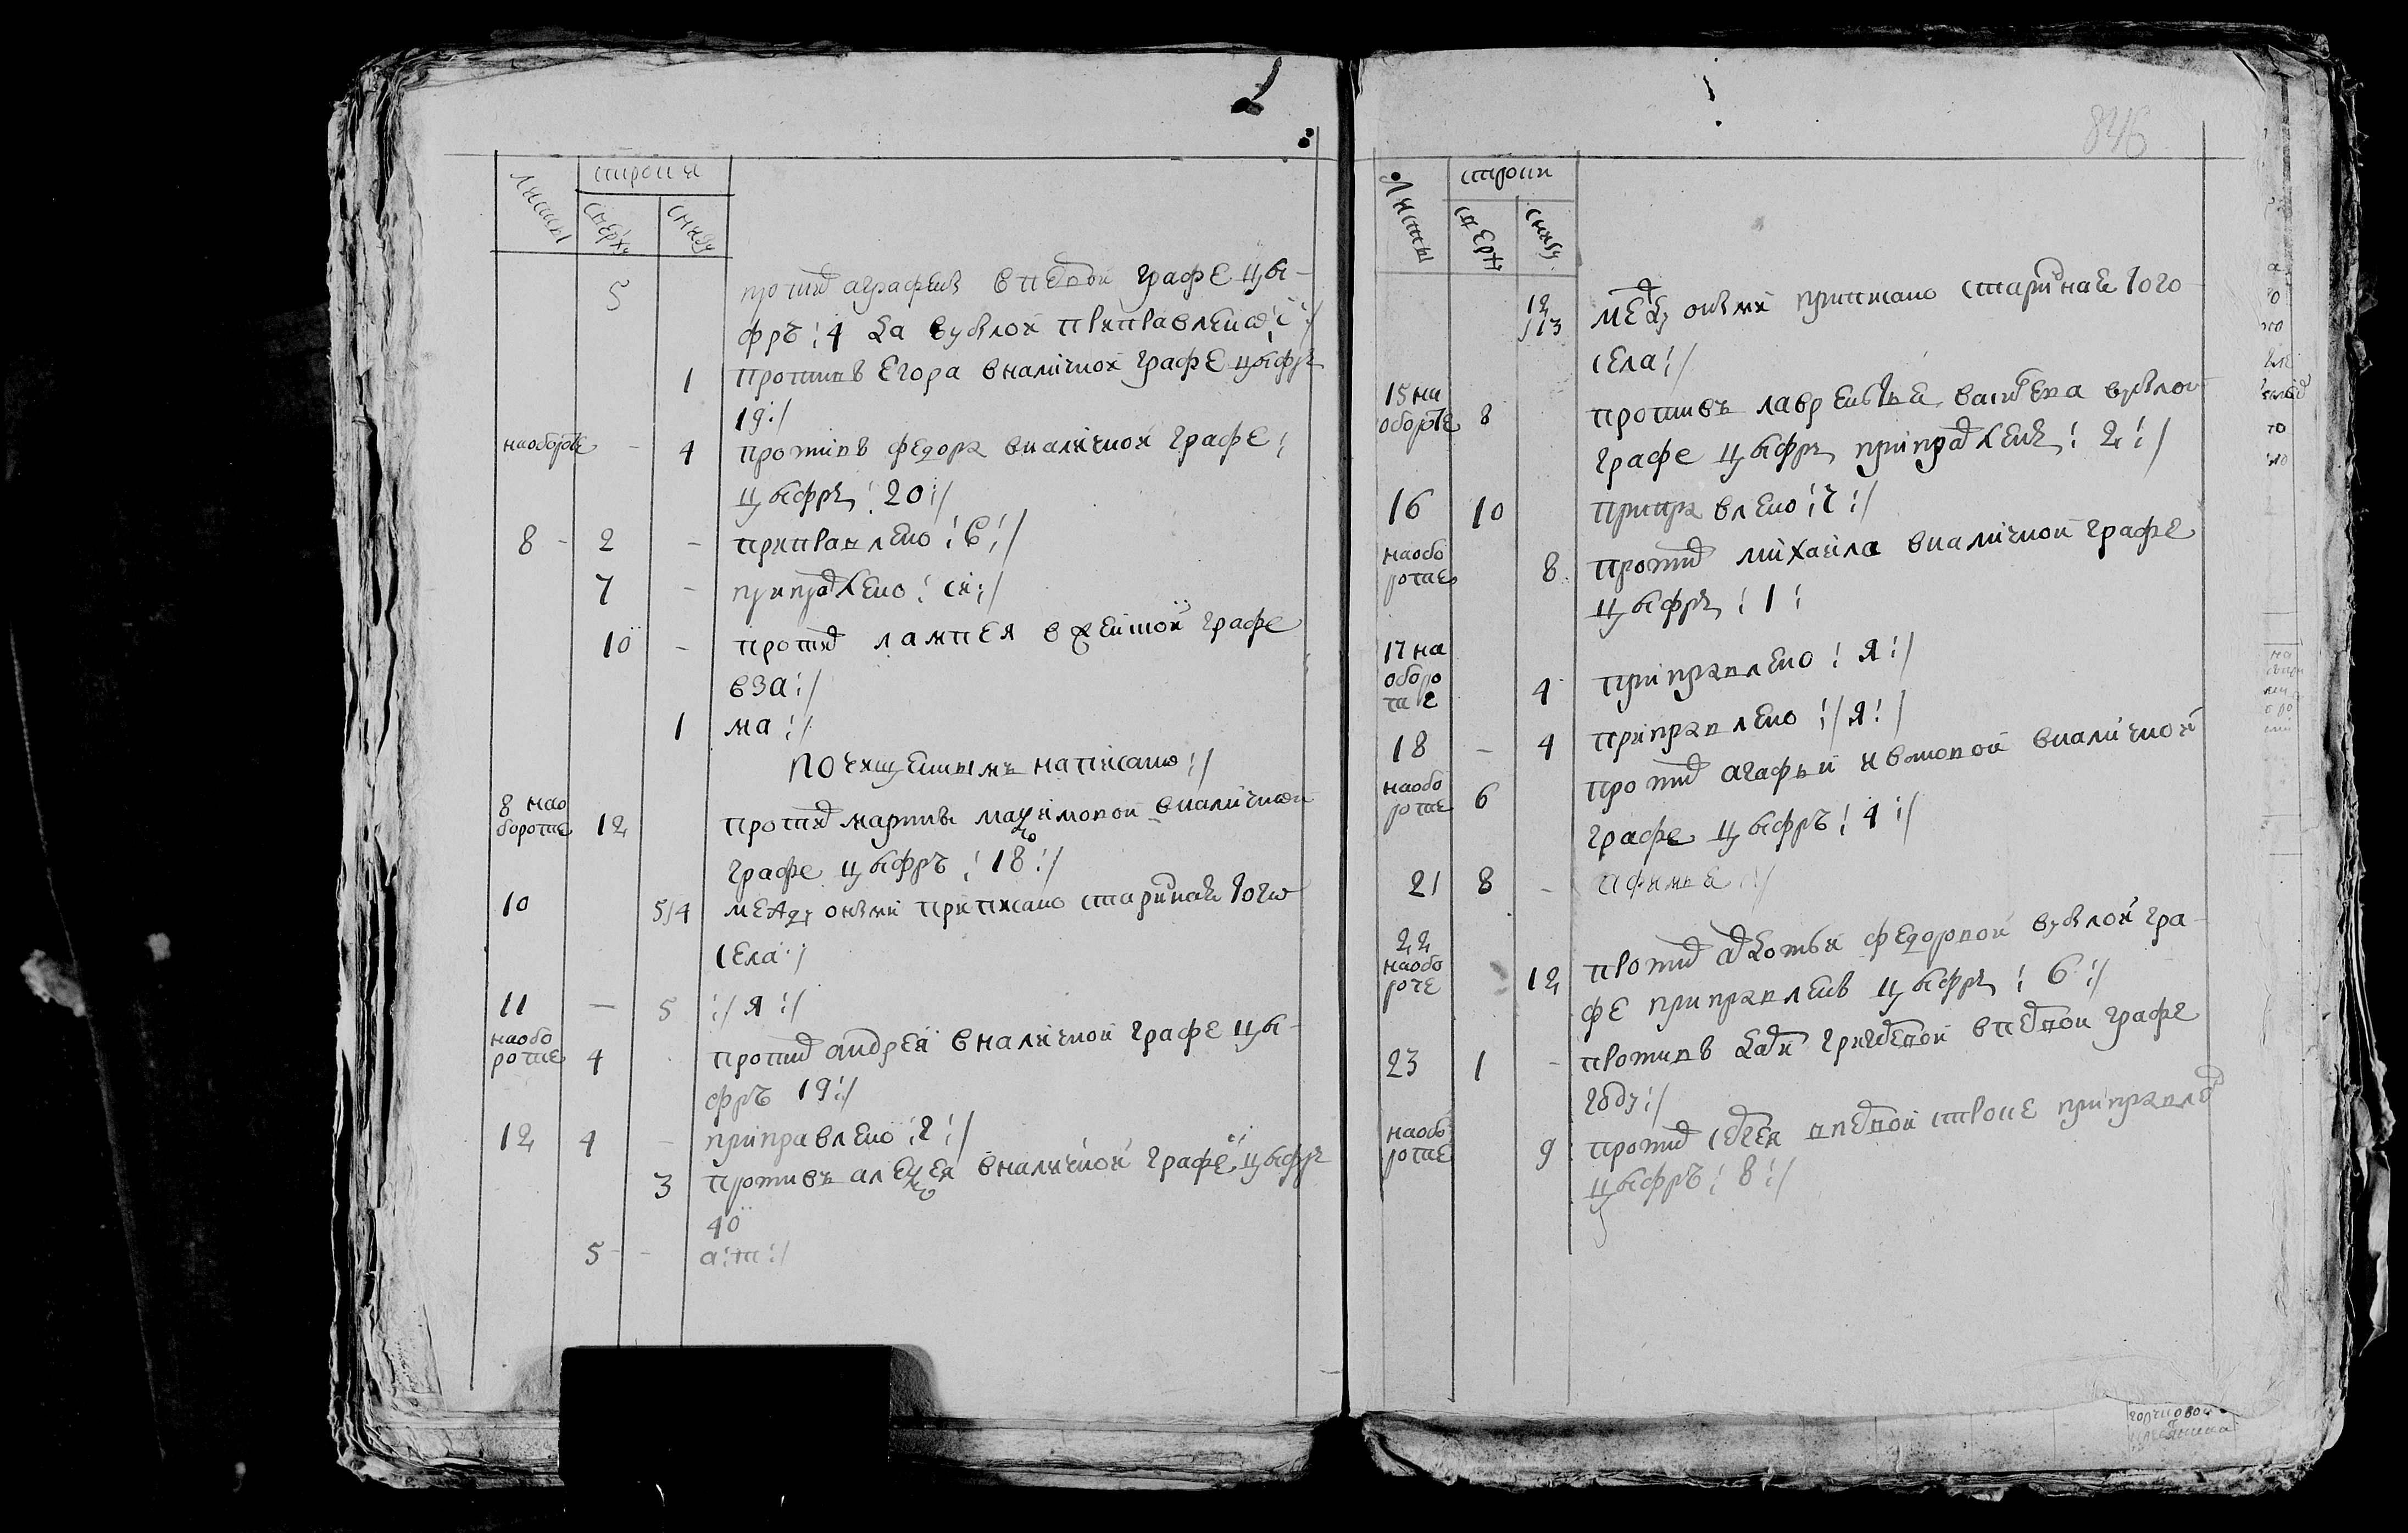 листы строки
сверху снизу
5 против аграфены в первой графе цы-
фръ ⁝ 4 да вубылой приправленое ⁝/
1 противъ Егора вналичной графе цыфръ
19 ⁝/
наоборотѣ - 4 противъ федора вналичной графе ⁝
цыфръ ⁝ 20 ⁝/
8 - 2 - приправлено ⁝ в ⁝/
7 - приправлено ⁝ си ⁝/
10 - против лампея в графе
вза ⁝/
1 ма ⁝/
по чищеннымъ написано ⁝/
8 нао
боротѣ 12 против марины максимовой вналичной
графе цыфръ ⁝ 18 ⁝/
10 5/4 между оными приписано старинає того
села ⁝/
11 — 5 ⁝/ я ⁝/
наобо
ротѣ 4 против андрея вналичной графе цы-
фръ 19 ⁝/
12 4 - приправлено ⁝ г ⁝/
3 противъ алексея вналичной графе цыфръ
40
5 - - а ⁝ т ⁝/
846
листы строки
сверху снизу
12
/13 между оными приписано старинає того
села ⁝/
15 на
оборотѣ 8 противъ лаврентья васильева вубылой
графе цыфръ приправленъ ⁝ 2 ⁝/
16 10 приправлено ⁝ г ⁝/
наобо
ротѣ 8 против михаила вналичной графе
цыфръ ⁝ 1 ⁝
17 на
оборо
те 4 приправлено ⁝ я ⁝/
18 - 4 приправлено ⁝/ я ⁝/
наобо
ротѣ 6 против агафьи ивановой вналичной
графе цыфръ ⁝ 4 ⁝/
21 8 - афимья ⁝/
22
наобо
роте 12 против авдотьи федоровой вубылой гра-
фе приправленъ цыфръ ⁝ 6 ⁝/
23 1 - противъ графе
году ⁝/
наобо
ротѣ 9 против сергея впервой строке приправлено
цыфръ ⁝ 8 ⁝/